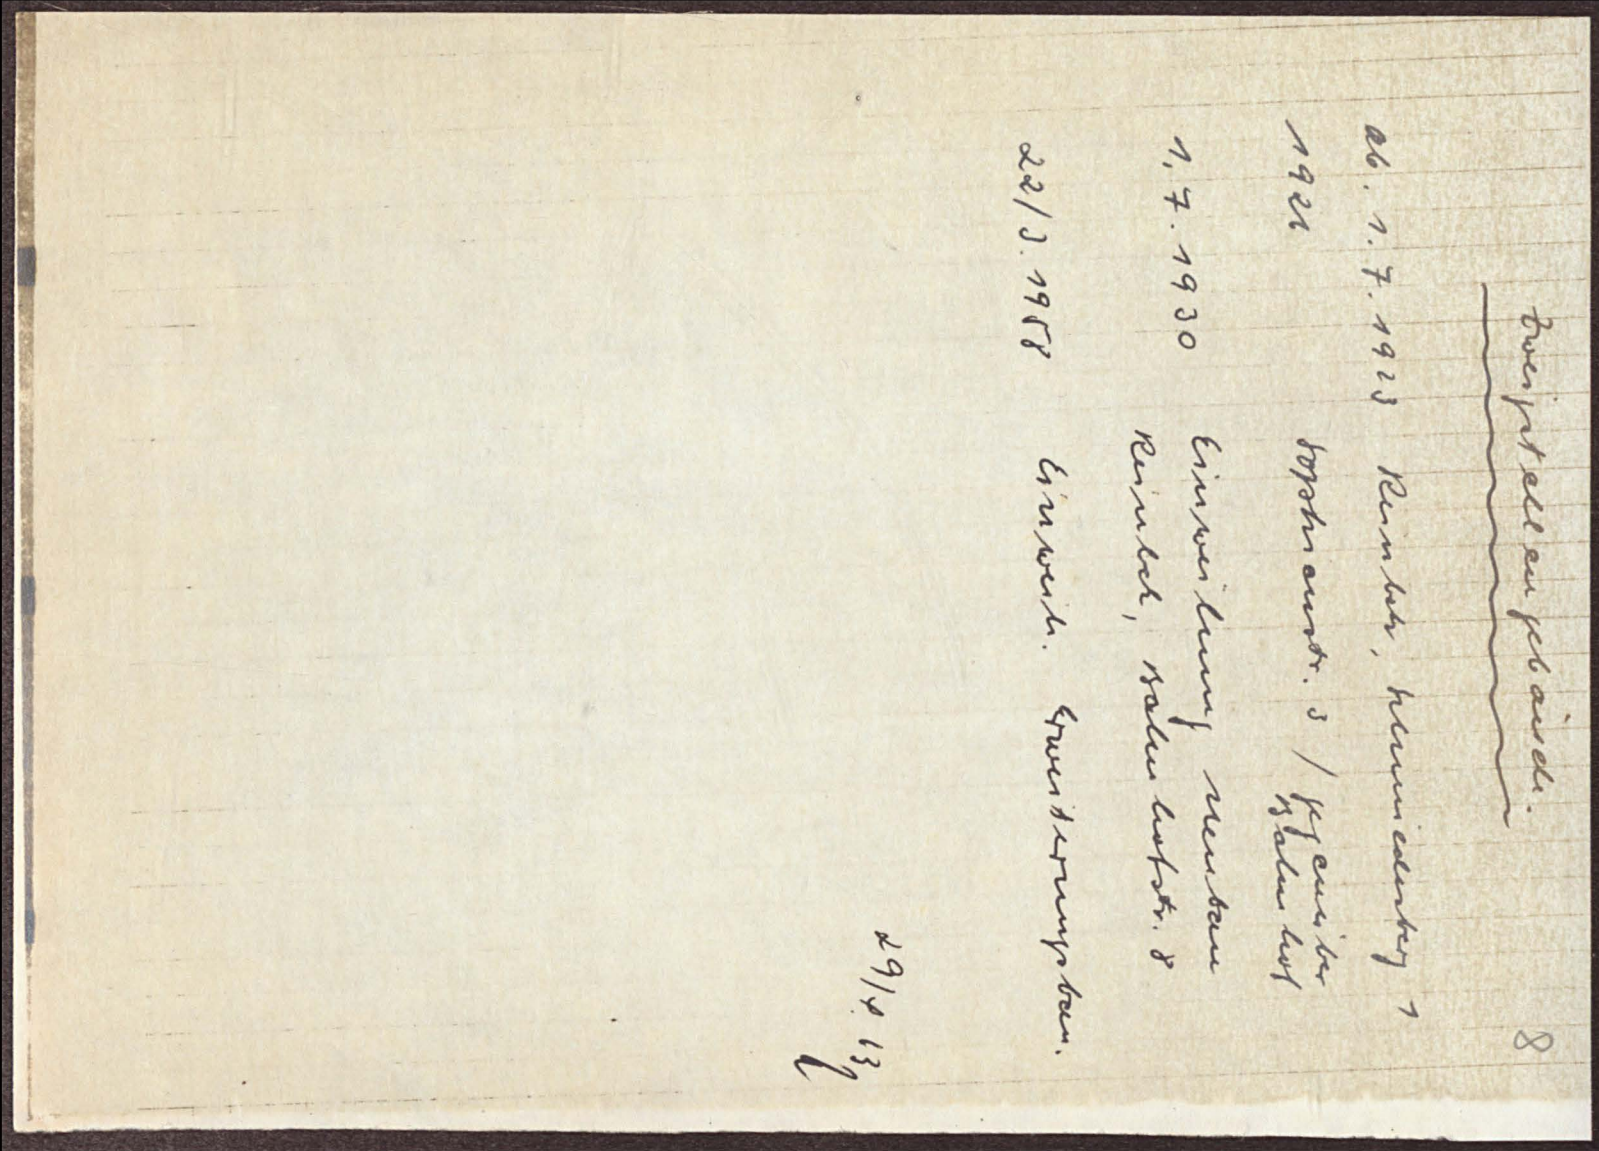 8
Zweigstellengebäude.
ab. 1.7.1923 Reinbek, Hermiedenberg 1
192 Sophienstr. 3 / gegenüber
Bahnhof
1.7.1930 Einweihung Neubau
Reinbek, Bahnhofstr. 8
22/3.1958 Einweih. Erweiterungsbau.
29/